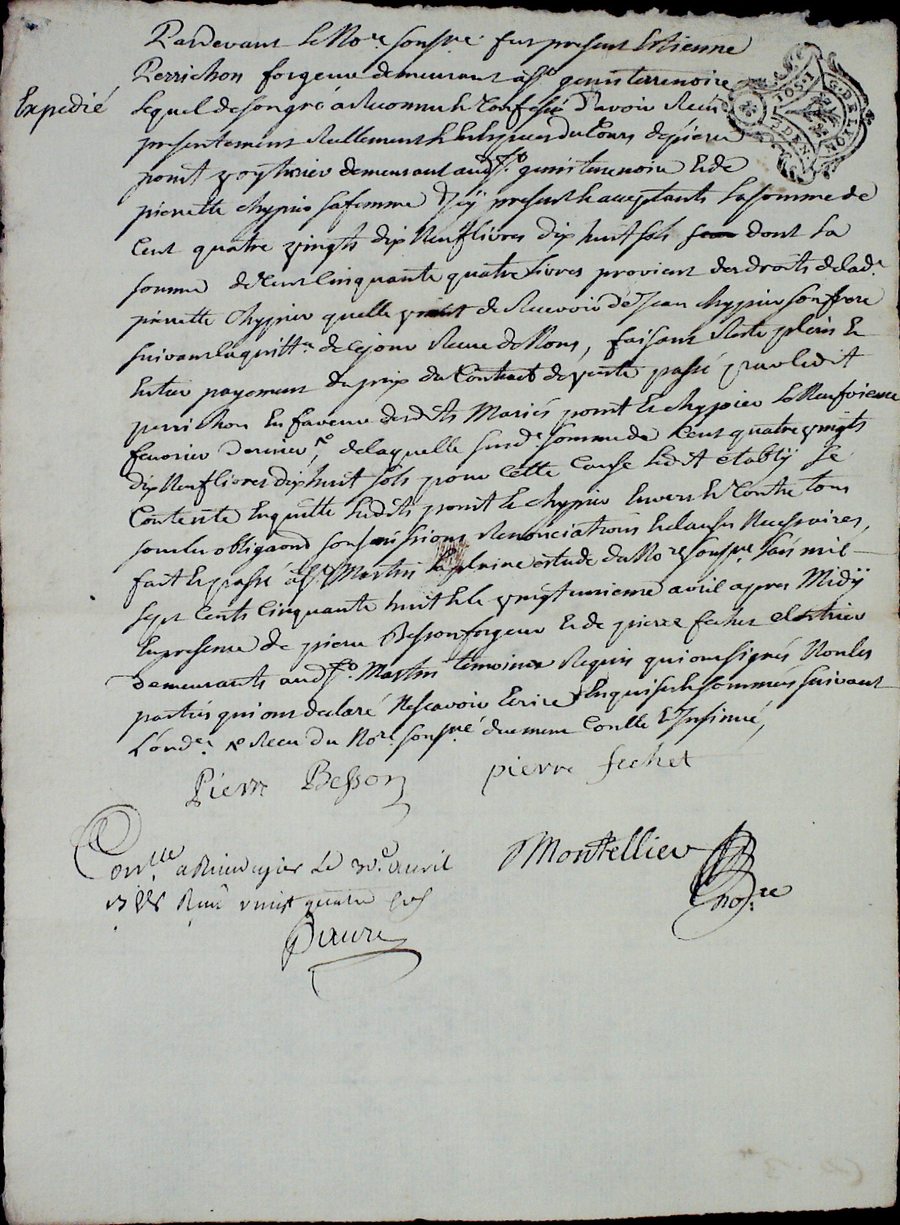 Pardevant le No.re soussig.né fut present Estienne
Perrichon forgeur demeurant a St genis terrenoire
Expedié
Lequel de son gré a Reconnu & Confessé d'avoir Recu
presentement Reellement & En Especes du Cours de pierre
point voyturier demeurant aud. St. genis terrenoire & de
pierrette chypier sa femme Icy present & acceptants La somme de
Cent quatre vingts dix Neuf livres dix huit sols dont La
somme de Cent Cinquante quatre Livres provient des droits de lad.e
pierrette Chypier quelle vient de Recevoir de Jean chypier son frere
suivant la quitt.ce de Ce jour Recue du No.re, faisant Reste plein &
Entier payement du prix du Contract de vente passé par ledit
perrichon En faveur desdits Mariés point & chypier Le Neufvieme
fevrier dernier, de laquelle susd.e somme de Cent quatre vingts
dix Neuf livres dix huit sols pour Cette Cause Ledit étably se
Contente En quitte Lesdits point & chypier Envers & Contre tous
sous les obliga.ons soumissions Renonciations & clauses Necessaires,
fait & passé a St Martin la plaine etude du No.re soussig.né L'an mil
sept Cents Cinquante huit & le vingt unieme avril apres Midÿ
En presence de pierre Besson forgeur & de pierre fechet
demeurants aud. St. Martin temoins Requis qui ont signés Non les
parties qui ont declaré Ne scavoir Ecrire Enquis & sommés suivant
L'ord.ce & Recu du No.re soussig.né duement Contllé & Insinué,
Pierre Besson pierre fechet
Con.lle a Rivedegier Le 30.e avril
1758 Recu vingt quatre sols
Montellier
No.re
G. DE LYON